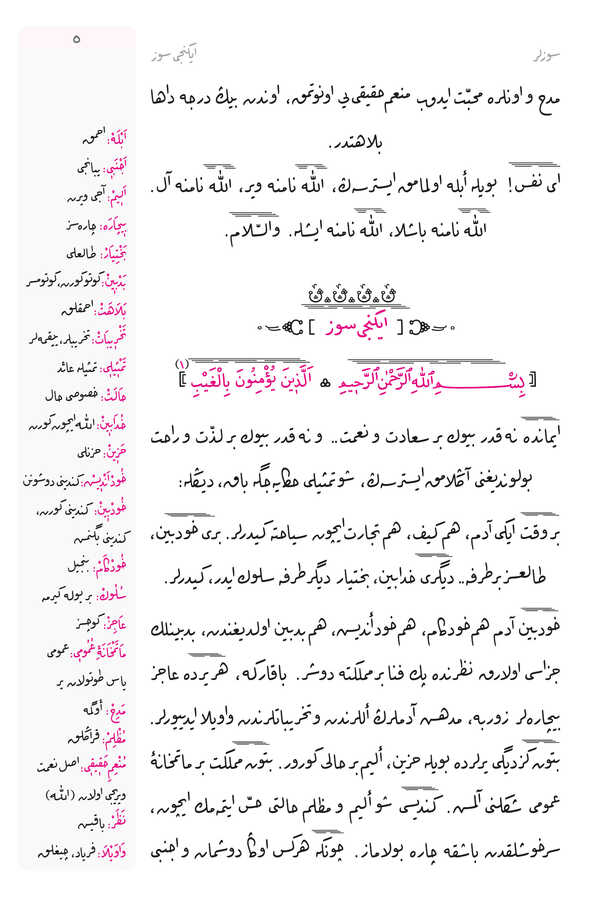 سوزلر
ايكنجى سوز
٥
مدح و اونلره محبّت ايدوب منعم حقيقى‌يى اونوتمق، اوندن بيڭ درجه داها
بلاهتدر.
اى نفس! بويله أبله اولمامق ايسترسه‌ڭ، اللّٰه نامنه وير، اللّٰه نامنه آل.
اللّٰه نامنه باشلا، اللّٰه نامنه ايشله. والسّلام.
[ ايكنجى سوز ]
[ بِسْمِ اللّٰهِ الرَّحْمٰنِ الرَّحِيمِ ❁ اَلَّذِينَ يُؤْمِنُونَ بِالْغَيْبِ (١) ]
ايمانده نه قدر بيوك بر سعادت و نعمت.. و نه قدر بيوك بر لذّت و راحت
بولونديغنى آڭلامق ايسترسه‌ڭ، شو تمثيلى حكايه‌جگه باق، ديڭله:
بر وقت ايكى آدم، هم كيف، هم تجارت ايچون سياحته كيدرلر. برى خودبين،
طالعسز بر طرفه.. ديگرى خدابين، بختيار ديگر طرفه سلوك ايدر، كيدرلر.
خودبين آدم هم خودكام، هم خودأنديش، هم بدبين اولديغندن، بدبينلك
جزاسى اولارق نظرنده پك فنا بر مملكته دوشر. باقاركه، هر يرده عاجز
بيچاره‌لر زوربه، مدهش آدملرڭ أللرندن و تخريباتلرندن واويلا ايدييورلر.
بتون كزديگى يرلرده بويله حزين، أليم بر حالى كورور. بتون مملكت بر ماتمخانهٔ
عمومى شكلنى آلمش. كنديسى شو أليم و مظلم حالتى حسّ ايتمه‌مك ايچون،
سرخوشلقدن باشقه چاره بولاماز. چونكه هركس اوڭا دوشمان و اجنبى
اَبْلَهْ: احمق
اَجْنَبِي: يبانجى
اَلِيمْ: آجى ويرن
بِيچَارَه: چاره‌سز
بَخْتِيَارْ: طالعلى
بَدْبِينْ: كوتو كورن، كوتومسر
بَلَاهَتْ: احمقلق
تَخْرِيبَاتْ: تخريبلر، ييقمه‌لر
تَمْثِيلِي: تمثيله عائد
حَالَتْ: خصوصى حال
خُدَابِينْ: اللّٰه ايچون كورن
حَزِينْ: حزنلى
خُودْاَنْدِيشْ: كندينى دوشونن
خُودْبِينْ: كندينى كورن،
كندينى بگنمش
خُودْكَامْ: بنجيل
سُلُوكْ: بر يوله كيرمه
عَاجِزْ: كوجسز
مَاتَمْخَانَهٔ عُمُومِي: عمومى
ياس طوتولان ير
مَدِحْ: أوگمه
مُظْلِمْ: قراڭلق
مُنْعِمِ حَقِيقِي: اصل نعمت
ويريجى اولان (اللّٰه)
نَظَرْ: باقيش
وَاوَيْلَا: فرياد، چيغلق